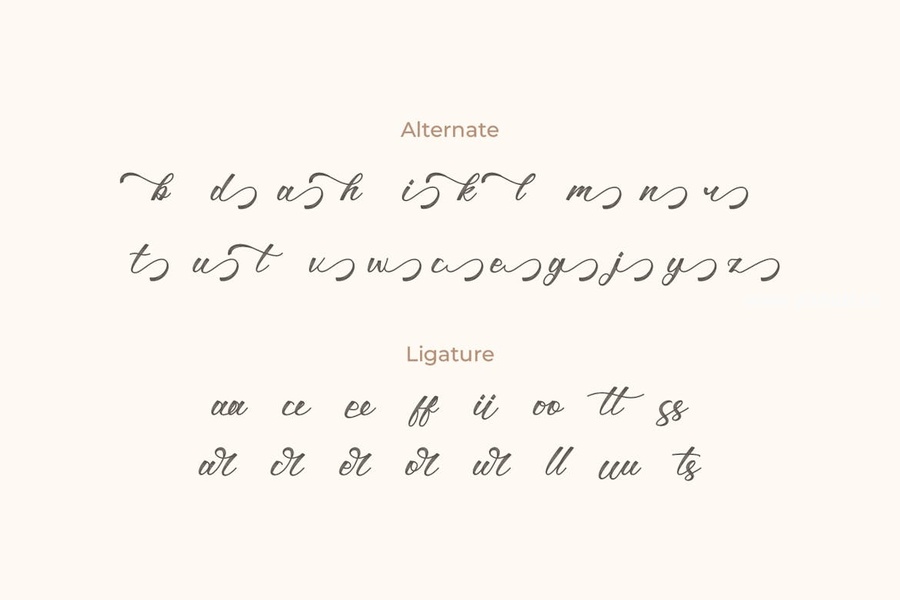 Alternate
b d a h i k l m n r
t u t v w c e g j y z
Ligature
aa cc ee ff ii oo tt ss
ar cr er or ur ll uu ts